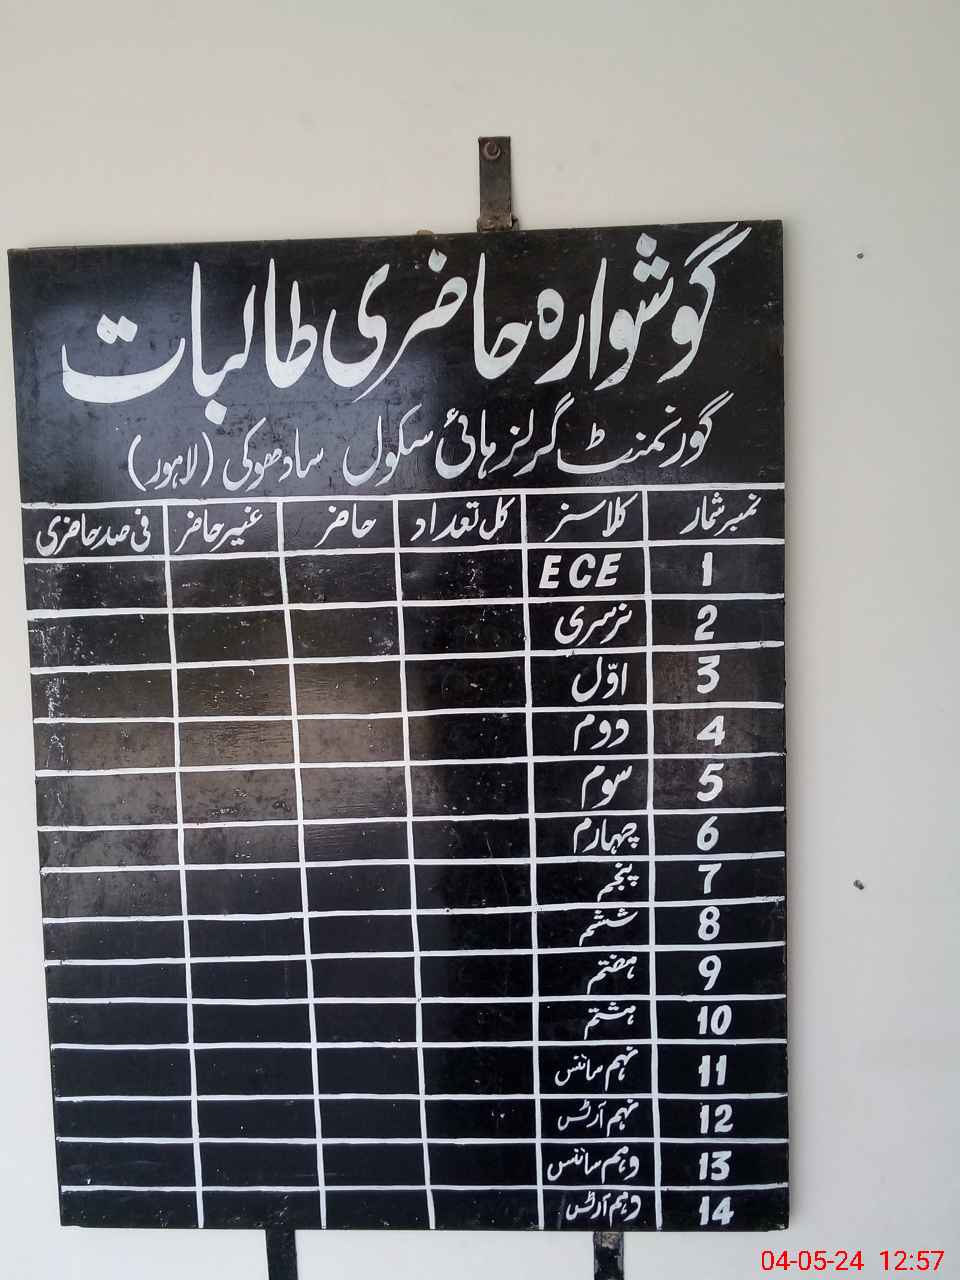 گوشوارہ حاضری طالبات
گورنمنٹ گرلز ہائی سکول سادھوکی (لاہور)
نمبر شمار کلاسز کل تعداد حاضر غیر حاضر فی صد حاضری
1 ECE
2 نرسری
3 اوّل
4 دوم
5 سوم
6 چہارم
7 پنجم
8 ششم
9 ہفتم
10 ہشتم
11 نہم سائنس
12 نہم آرٹس
13 دہم سائنس
14 دہم آرٹس
04-05-24 12:57